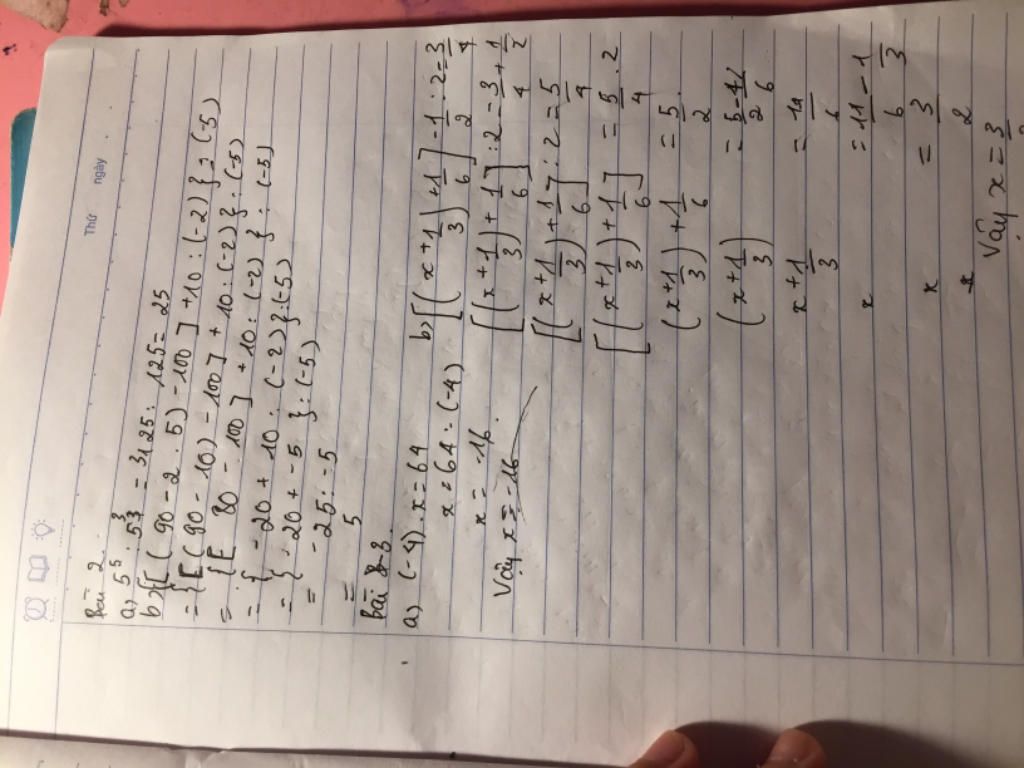 Thứ ngày
Bài 2
a) 5⁵ : 5³ = 3125 : 125 = 25
b) {[(90 - 2 . 5) - 100] + 10 : (-2)} : (-5)
= {[(90 - 10) - 100] + 10 : (-2)} : (-5)
= {[80 - 100] + 10 : (-2)} : (-5)
= {-20 + 10 : (-2)} : (-5)
= {-20 + -5} : (-5)
= -25 : -5
= 5
Bài 3
a) (-4) . x = 64
x = 64 : (-4)
x = -16
Vậy x = -16
b) [(x + 1/3) + 1/6] - 1/2 : 2 = 3/4
[(x + 1/3) + 1/6] : 2 = 3/4 + 1/2
[(x + 1/3) + 1/6] : 2 = 5/4
[(x + 1/3) + 1/6] = 5/4 . 2
(x + 1/3) + 1/6 = 5/2
(x + 1/3) = 5/2 - 1/6
x + 1/3 = 11/6
x = 11/6 - 1/3
x = 3/2
Vậy x = 3/2